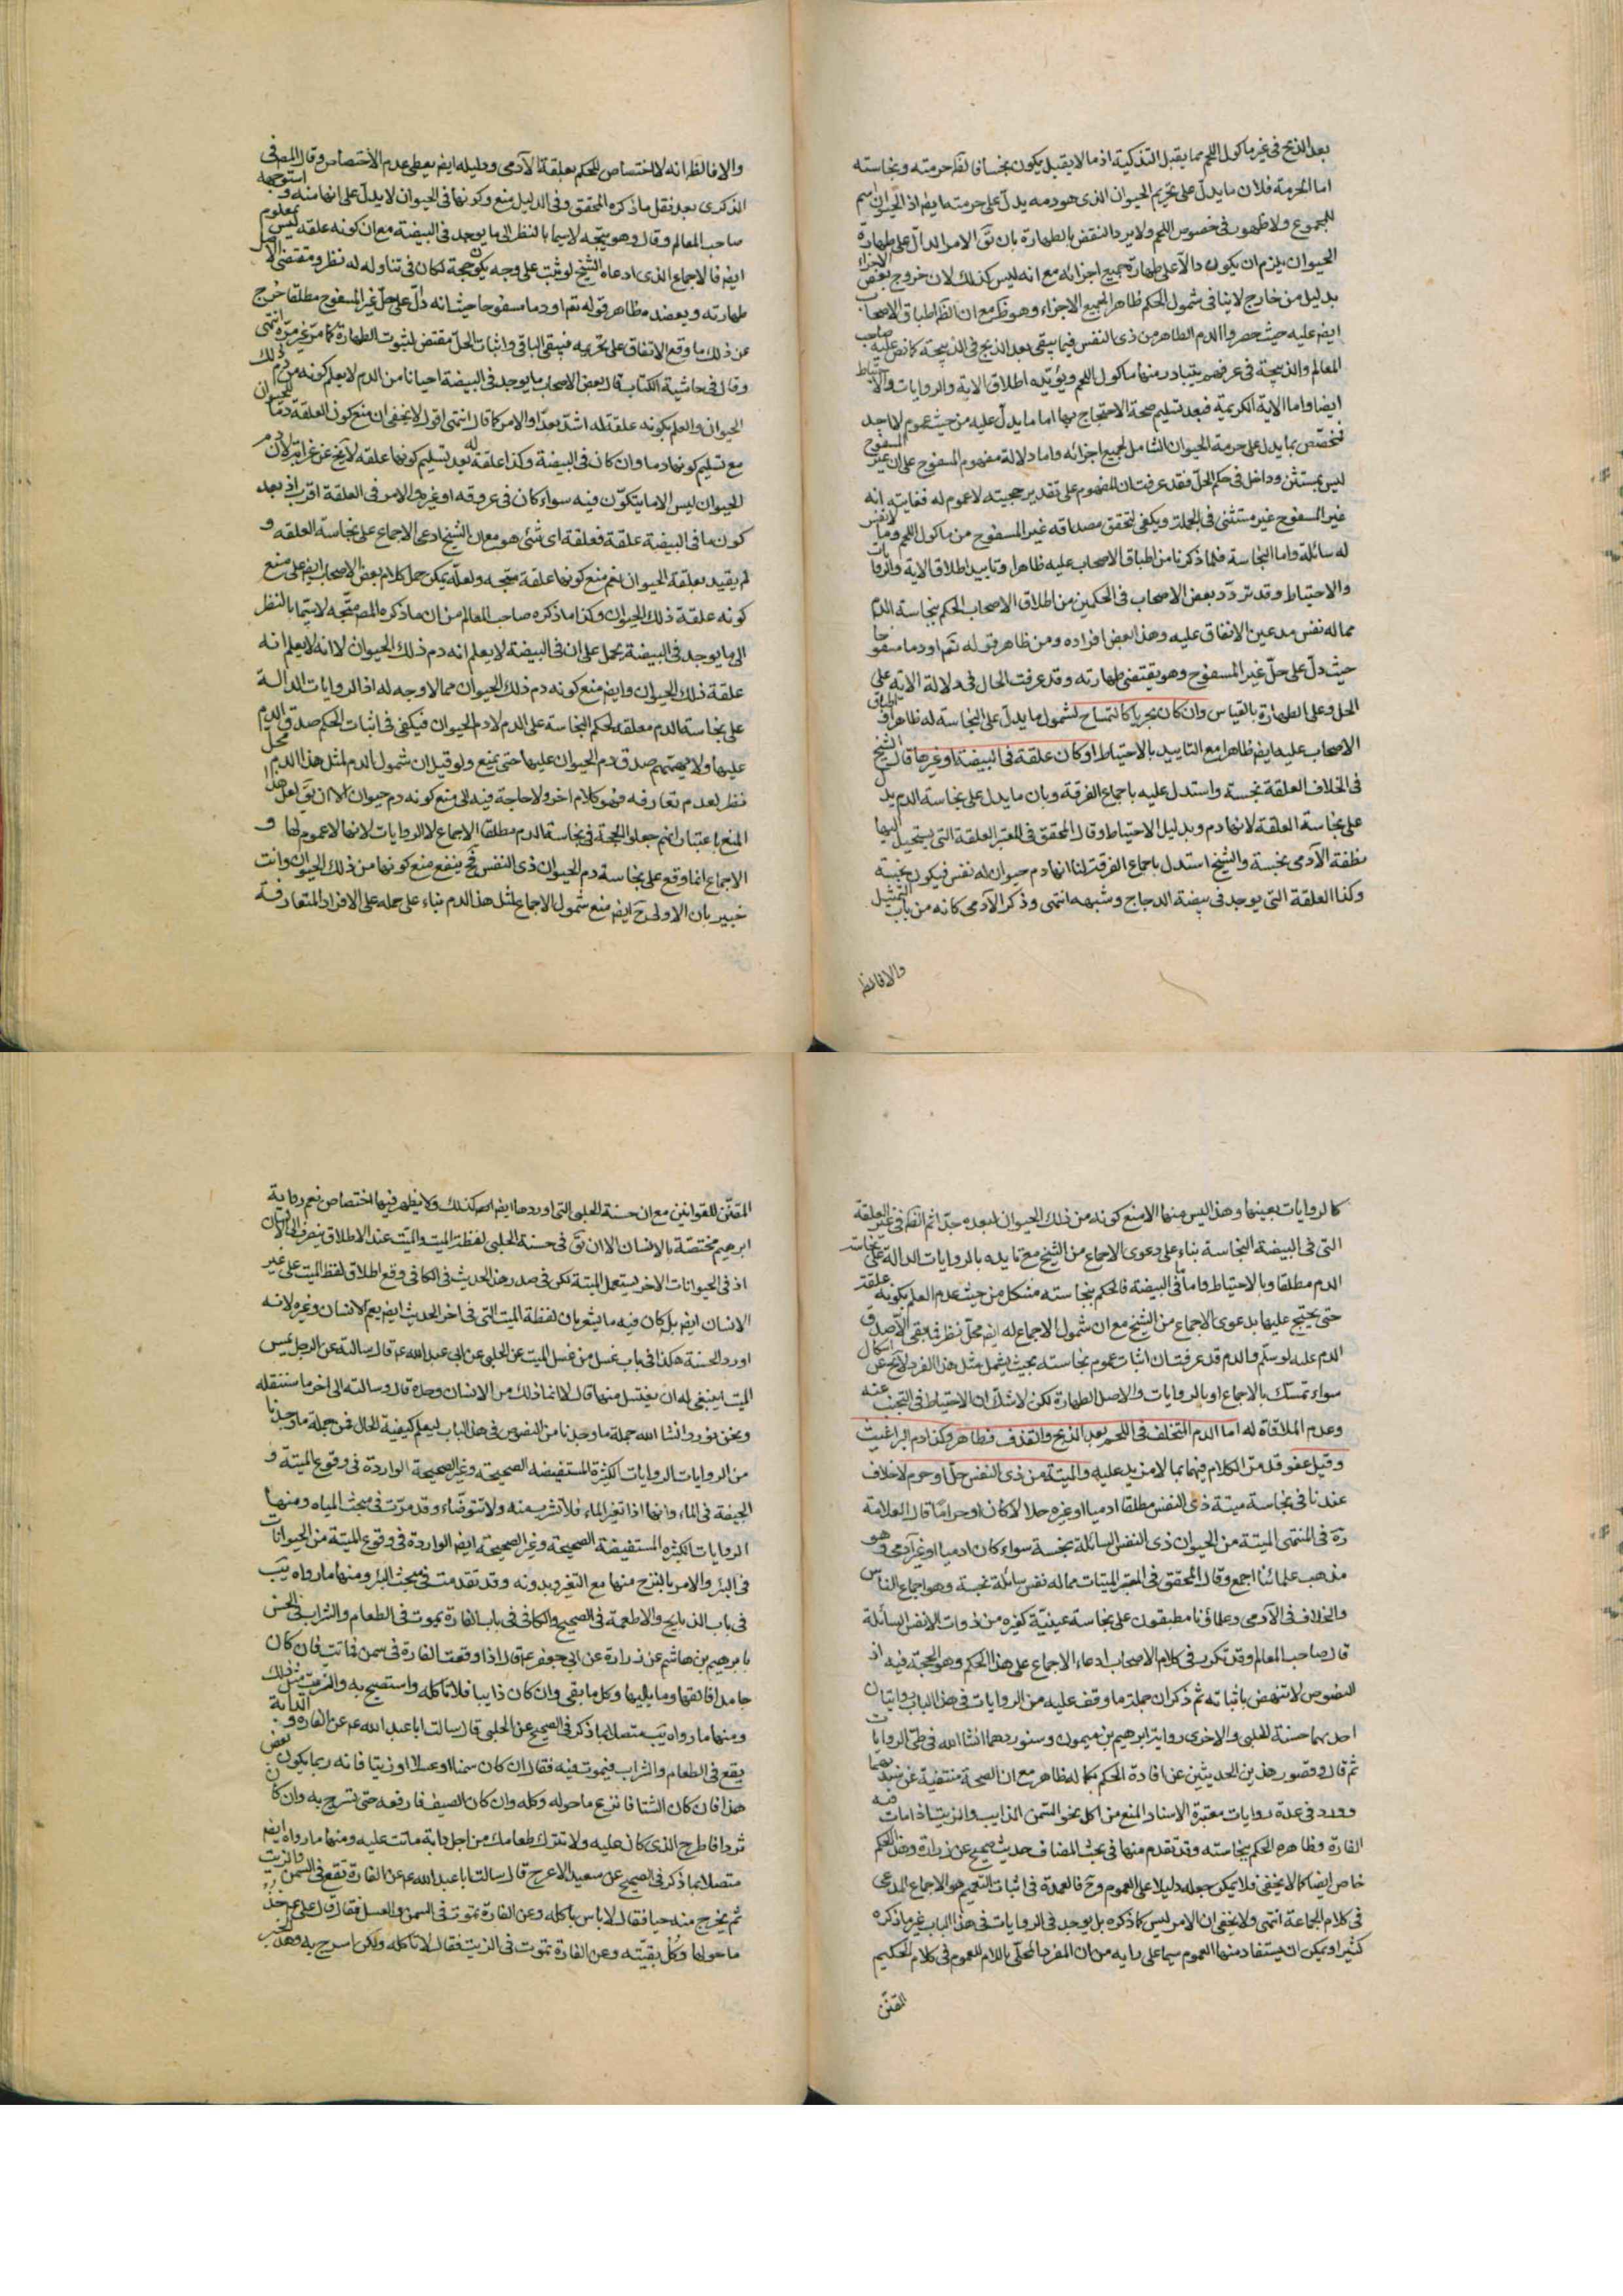 بعد الذبح فى غير ماكول اللحم مما يقبل التذكية اذ ما لا يقبل يكون نجسا فالظ حرمته ونجاسته
اما الحرمة فلان ما يدل على تحريم الحيوان الذى هو دمه يدل على حرمته ايض اذ الحيوان اسم
للمجموع ولا ظهور فى خصوص اللحم ولا يرد النقض بالطهارة بان يق الامر الدال على طهارة
الحيوان يلزم ان يكون دالا على طهارة جميع اجزائه مع انه ليس كذلك لان خروج بعض الاجزاء
بدليل من خارج لا ينافى شمول الحكم ظاهرا لجميع الاجزاء وهو ظ مع ان الظ اطباق الاصحاب
ايض عليه حيث حصروا الدم الطاهر من ذى النفس فيما يبقى بعد الذبح فى الذبيحة كما نص عليه صاحب
المعالم والذبيحة فى عرفهم يتبادر منها ماكول اللحم ويؤيده اطلاق الاية والروايات والاحتياط
ايضا واما الاية الكريمة فبعد تسليم صحة الاحتجاج بها اما ما يدل عليه من حيث عموم لا اجد
فمخصص بما يدل على حرمة الحيوان الشامل لجميع اجزائه واما دلالة مفهوم المسفوح على ان غير المسفوح
ليس بمستثنى وداخل فى حكم الحل فقد عرفت ان المفهوم على تقدير حجيته لا عموم له فغايته انه
غير المسفوح غير مستثنى فى الجملة ويكفى لتحقق مصداقه غير المسفوح من ماكول اللحم وما لا نفس
له سائلة واما النجاسة فلما ذكرنا من اطباق الاصحاب عليه ظاهرا وتاييد اطلاق الاية والروايات
والاحتياط وقد تردد بعض الاصحاب فى الحكمين من اطلاق الاصحاب الحكم بنجاسة الدم
مما له نفس مدعين الاتفاق عليه وهذا بعض افراده ومن ظاهر قوله تعم او دما مسفوحا
حيث دل على حل غير المسفوح وهو يقتضى طهارته وقد عرفت الحال فى دلالة الاية على
الحل وعلى الطهارة بالقياس وان كان بحريا كالتمساح لشمول ما يدل على النجاسة له ظاهرا واطلاق
الاصحاب عليه ايض ظاهرا مع التاييد بالاحتياط او كان علقة فى البيضة او غيرها قال الشيخ
فى الخلاف العلقة نجسة واستدل عليه باجماع الفرقة وبان ما يدل على نجاسة الدم يدل
على نجاسة العلقة لانها دم وبدليل الاحتياط وقال المحقق فى المعتبر العلقة التى يستحيل اليها
نطفة الآدمى نجسة والشيخ استدل باجماع الفرقة لنا انها دم حيوان له نفس فيكون نجسة
وكذا العلقة التى يوجد فى بيضة الدجاج وشبهه انتهى وذكر الآدمى كانه من باب التمثيل
والا فالظ
والا فالظ انه لا اختصاص للحكم بعلقة الآدمى ودليله ايض يعطى عدم الاختصاص وقال المص فى
الذكرى بعد نقل ما ذكره المحقق وفى الدليل منع وكونها فى الحيوان لا يدل على انها منه واستوجهه
صاحب المعالم وقال وهو متجه لا سيما بالنظر الى ما يوجد فى البيضة مع ان كونه علقة ليس بمعلوم
ايض فالاجماع الذى ادعاه الشيخ لو ثبت على وجه يكون حجة لكان فى تناوله له نظر ومقتضى الاصل
طهارته ويعضده ظاهر قوله تعم او دما مسفوحا حيث انه دال على حل غير المسفوح مطلقا خرج
عن ذلك ما وقع الاتفاق على تحريمه فيبقى الباقى واثبات الحل مقتض لثبوت الطهارة كما مر غير مرة انتهى
وقال فى حاشية الكتاب قال بعض الاصحاب ما يوجد فى البيضة احيانا من الدم لا يعلم كونه من دم ذلك
الحيوان والعلم بكونه علقة له اشد بعدا والامر كما قال انتهى اقول لا يخفى ان منع كون العلقة دما للحيوان
مع تسليم كونها دما وان كان فى البيضة وكذا علقة له بعد تسليم كونها علقة لا يخ عن غرابة لان دم
الحيوان ليس الا ما يتكون فيه سواء كان فى عروقه او غيره والامر فى العلقة اقرب اذ بعد
كون ما فى البيضة علقة فعلقة اى شئ هو مع ان الشيخ ادعى الاجماع على نجاسة العلقة و
لم يقيد بعلقة الحيوان نعم منع كونها علقة متجه ولعله يمكن حمل كلام بعض الاصحاب ايض على منع
كونه علقة ذلك الحيوان وكذا ما ذكره صاحب المعالم من ان ما ذكره المص متجه لا سيما بالنظر
الى ما يوجد فى البيضة يحمل على ان فى البيضة لا يعلم انه دم ذلك الحيوان لا انه لا يعلم انه
علقة ذلك الحيوان وايض منع كونه دم ذلك الحيوان مما لا وجه له اذ الروايات الدالة
على نجاسة الدم معلقة لحكم النجاسة على الدم لا دم الحيوان فيكفى فى اثبات الحكم صدق الدم
عليها ولا يهتم صدق دم الحيوان عليها حتى يمنع ولو قيل ان شمول الدم لمثل هذا الدم محل
نظر لعدم تعارفه فهو كلام اخر ولا حاجة فيه الى منع كونه دم حيوان الا ان يق لعل هذا
المنع باعتبار انهم جعلوا الحجة فى نجاسة الدم مطلقا الاجماع لا الروايات لانها لا عموم لها و
الاجماع انما وقع على نجاسة دم الحيوان ذى النفس فح ينفع منع كونها من ذلك الحيوان وانت
خبير بان الاولى ح ايض منع شمول الاجماع لمثل هذا الدم بناء على حمله على الافراد المتعارفة
كالروايات بعينها وهذا ليس منها الا منع كونه من ذلك الحيوان لبعده جدا ثم الظ فى غير العلقة
التى فى البيضة النجاسة بناء على دعوى الاجماع من الشيخ مع تايده بالروايات الدالة على نجاسة
الدم مطلقا وبالاحتياط واما ما فى البيضة فالحكم بنجاسته مشكل من حيث عدم العلم بكونه علقة
حتى يحتج عليها بدعوى الاجماع من الشيخ مع ان شمول الاجماع له ايض محل نظر فيبقى الا صدق
الدم عليه لو سلم والدم قد عرفت ان اثبات عموم نجاسته بحيث يشمل مثل هذا الفرد لا يخ عن اشكال
سواء تمسك بالاجماع او بالروايات والاصل الطهارة لكن لا شك ان الاحتياط فى التجنب عنه
وعدم الملاقاة له اما الدم المتخلف فى اللحم بعد الذبح والقذف فطاهر وكذا دم البراغيث
وقيل عفو قد مر الكلام فيهما بما لا مزيد عليه والميتة من ذى النفس حل او حرم لا خلاف
عندنا فى نجاسة ميتة ذى النفس مطلقا ادميا او غيره حلالا كان او حراما قال العلامة
ره فى المنتهى الميتة من الحيوان ذى النفس السائلة نجسة سواء كان ادميا او غير آدمى وهو
مذهب علمائنا اجمع وقال المحقق فى المعتبر الميتات مما له نفس سائلة نجسة وهو اجماع الناس
والخلاف فى الآدمى وعلماؤنا مطبقون على نجاسته عينية كغيره من ذوات الانفس السائلة
قال صاحب المعالم وقد تكرر فى كلام الاصحاب ادعاء الاجماع على هذا الحكم وهو الحجة فيه اذ
النصوص لا تنهض باثباته ثم ذكر ان جملة ما وقف عليه من الروايات فى هذا الباب روايتان
احديهما حسنة للحلبى والاخرى رواية ابرهيم بن ميمون وسنوردهما انشاالله فى طى الروايات
ثم قال وقصور هذين الحديثين عن افادة الحكم بكماله ظاهر مع ان الصحة منتفية عن سنديهما
وورد فى عدة روايات معتبرة الاسناد المنع من اكل نحو السمن الذايب والزيت اذا مات فيه
الفارة وظاهره الحكم بنجاسته وقد تقدم منها فى بحث المضاف حديث صحيح عن زرارة وهذا الحكم
خاص ايضا كما لا يخفى فلا يمكن جعله دليلا على العموم وح فالعمدة فى اثبات التعميم هو الاجماع المدعى
فى كلام الجماعة انتهى ولا يخفى ان الامر ليس كما ذكره بل يوجد فى الروايات فى هذا الباب غير ما ذكره
كثيرا ويمكن ان يستفاد منها العموم سيما على رايه من ان المفرد المحلى باللام للعموم فى كلام الحكيم
المقنن
المقنن للقوانين مع ان حسنة الحلبى التى اوردها ايض كذلك ولا يظهر فيها اختصاص نعم رواية
ابرهيم مختصة بالانسان الا ان يق فى حسنة الحلبى لفظة الميت والميت عند الاطلاق ينصرف الى الانسان
اذ فى الحيوانات الاخر يستعمل الميتة لكن فى صدر هذا الحديث فى الكافى وقع اطلاق لفظ الميت على غير
الانسان ايض بل كان فيه ما يشعر بان لفظة الميت التى فى اخر الحديث ايض يعم الانسان وغيره لانه
اورد الحسنة هكذا فى باب غسل من غسل الميت عن الحلبى عن ابى عبد الله عم قال سالته عن الرجل يمس
الميتة اينبغى له ان يغتسل منها قال لا انما ذلك من الانسان وحده قال وسالته الى اخر ما سننقله
ونحن نورد انشا الله جملة ما وجدنا من النصوص فى هذا الباب ليعلم كيفية الحال فمن جملة ما وجدنا
من الروايات الروايات الكثيرة المستفيضة الصحيحة وغير الصحيحة الواردة فى وقوع الميتة و
الجيفة فى الماء وانها اذا تغير الماء فلا تشرب منه ولا تتوضاء وقد مرت فى مبحث المياه ومنها
الروايات الكثيرة المستفيضة الصحيحة وغير الصحيحة ايض الواردة فى وقوع الميتة من الحيوانات
فى البئر والامر بالنزح منها مع التغير وبدونه وقد تقدمت فى مبحث البئر ومنها ما رواه يب
فى باب الذبايح والاطعمة فى الصحيح والكافى فى باب الفارة يموت فى الطعام والشراب فى الحسن
بابرهيم بن هاشم عن زرارة عن ابى جعفر عم قال اذا وقعت الفارة فى سمن فماتت فان كان
جامدا فالقها وما يليها وكل ما بقى وان كان ذايبا فلا تاكله واستصبح به والزيت مثل ذلك
ومنها ما رواه يب متصلا بما ذكر فى الصحيح عن الحلبى قال سالت ابا عبد الله عم عن الفارة والدابة
يقع فى الطعام والشراب فيموت فيه فقال ان كان سمنا او عسلا او زيتا فانه ربما يكون بعض
هذا فان كان الشتا فانزع ما حوله وكله وان كان الصيف فارفعه حتى تسرج به وان كان
ثردا فاطرح الذى كان عليه ولا تترك طعامك من اجل دابة ماتت عليه ومنها ما رواه ايض
متصلا بما ذكر فى الصحيح عن سعيد الاعرج قال سالت ابا عبد الله عم عن الفارة تقع فى السمن والزيت
ثم يخرج منه حيا فقال لا باس باكله وعن الفارة تموت فى السمن والعسل فقال قال على عم خذ
ماحولها وكل بقيته وعن الفارة تموت فى الزيت فقال لا تاكله ولكن اسرج به وهذا الخبر